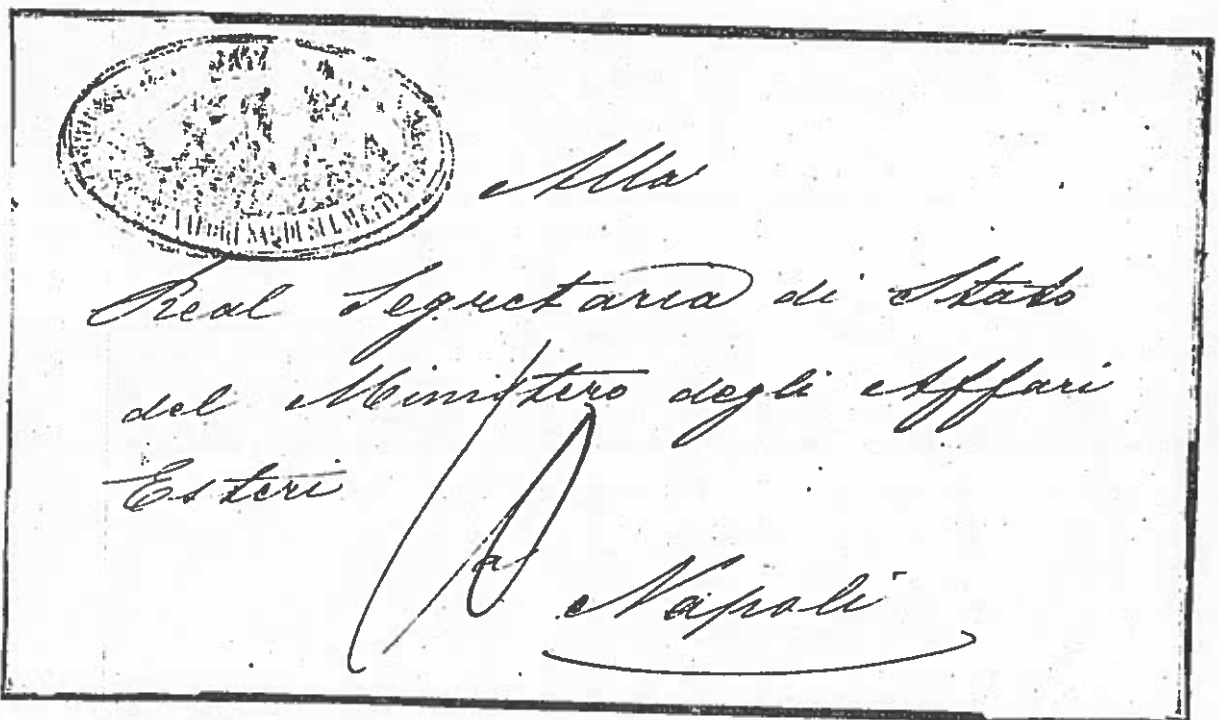 Alla
Real Segretaria di Stato
del Ministero degli Affari
Esteri
a
Napoli